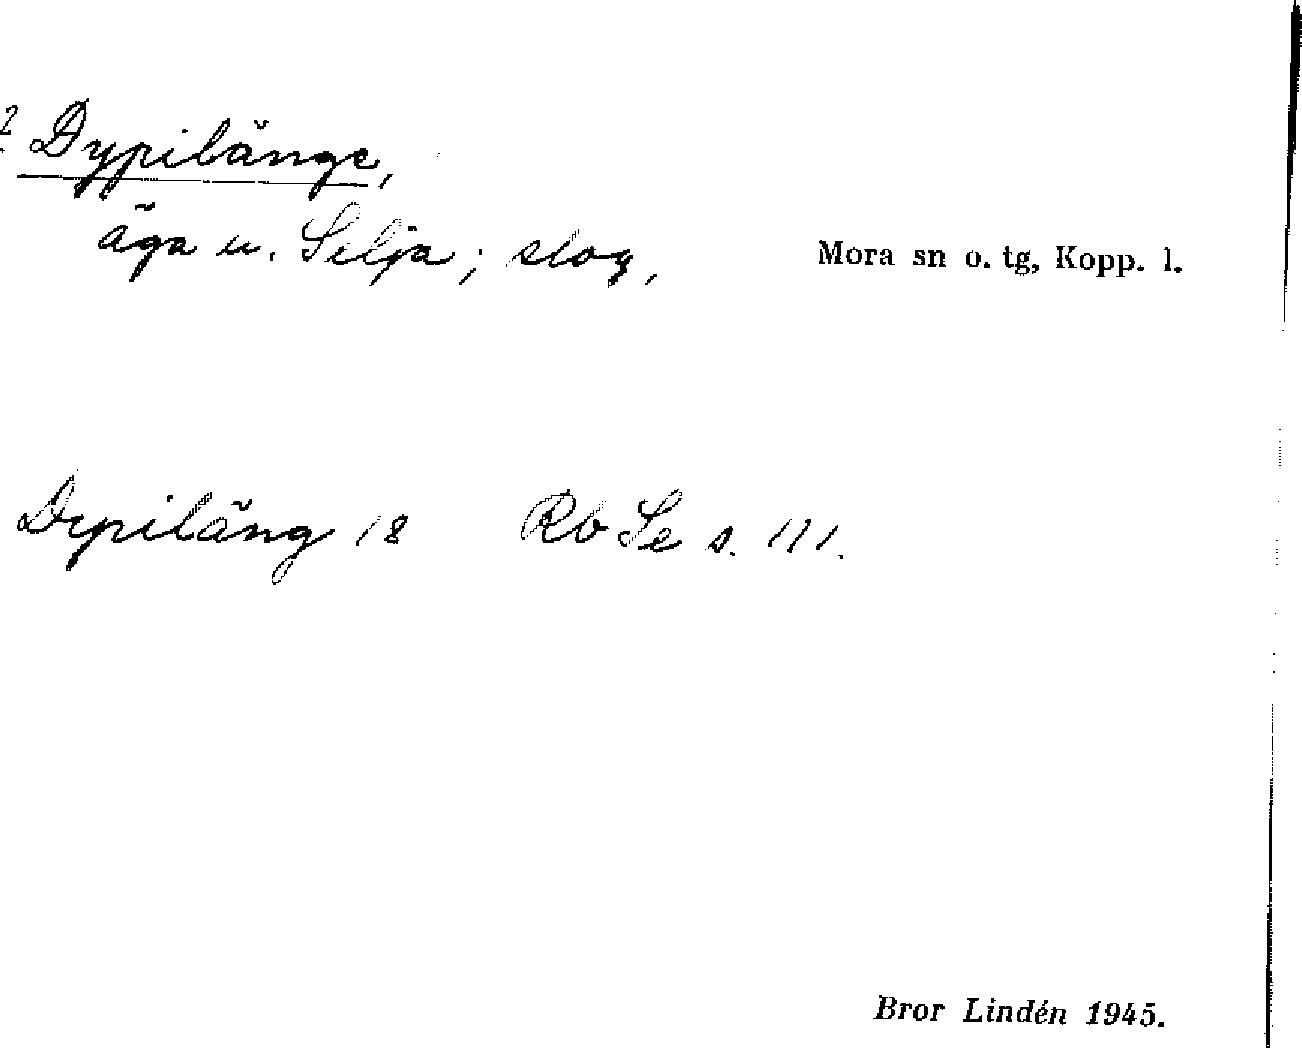 ? Dypilänge,
äga u. Selja; slog,
Mora sn o. tg, Kopp. l.
Dypiläng 18 Rb Se s. 111.
Bror Lindén 1945.